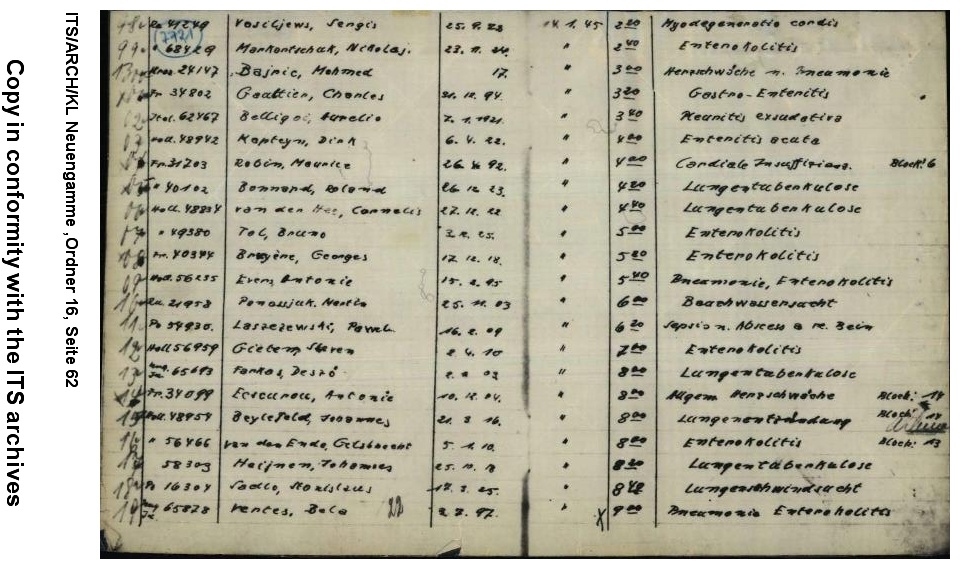 Copy in conformity with the ITS archives
ITS/ARCH/KL Neuengamme ,Ordner 16, Seite 62
98 Ru 41249 Vasiljews, Sergis 25. 9. 23 14. 1. 45 2 20 Myodegeneratio cordis
2721
99 " 68429 Markontschuk, Nikolaj. 23. 11. 24. " 2 40 Enterokolitis
24147 Bajric, Mohmed 17. " 3 00 Herzschwäche n. Pneumonie
Fr. 34802 Gaultier, Charles 21. 12. 94. " 3 20 Gastro-Enteritis
02 Ital. 62467 Aurelio 7. 1. 1921. " 3 40 Pleuritis exsudativa
Holl. 48942 Kapteyn, Dirk 6. 4. 22. " 4 00 Enteritis acuta
Fr. 31703 Robin, Maurice 26. 92. " 4 00 Cardiale Insuffizienz. Block: 6
" 40102 Bonnard, Roland 26. 12. 23. " 4 20 Lungentuberkulose
06 Holl. van der Cornelis 27. 12. 22 " 4 40 Lungentuberkulose
07 " 49380 Tol, Bruno 25. " 5 00 Enterokolitis
08 Fr. 40394 Bruyère, Georges 17. 12. 18. " 5 20 Enterokolitis
09 Holl. 56235 Evers, Antonie 15. 2. 95 " 5 40 Pneumonie, Enterokolitis
10 Ru. 21958 Panasjuk, 25. 11. 03 " 6 00 Bauchwassersucht
11 Po 54930. Laszezewski, Pawel. 16. 2. 09 " 6 20 Sepsis n. Abscess a re. Bein
12 Holl 56959 Gietem, Steven 2. 4. 10 " 7 00 Enterokolitis
13 65693 Farkas, Desző 2. 03 " 8 00 Lungentuberkulose
14 Fr. 34099 Antonie 10. 12. 04. " 8 00 Allgem Herzschwäche Block: 14
15 Holl. 48954 Beylefeld, Johannes 21. 3 16. " 8 00 Lungenentzündung Block: 14
16 " 56466 van den Ende, Gilsbrecht 5. 1. 10. " 8 00 Enterokolitis Block: 13
17 58303 Heijnen, Johannes 25. 10. " 8 20 Lungentuberkulose
18 Po 16304 Sadlo, Stanislaus 17. 3. 25. " 8 40 Lungenschwindsucht
19 65828 Ventes, Bela 22 2. 97. " X 9 00 Pneumonie Enterokolitis